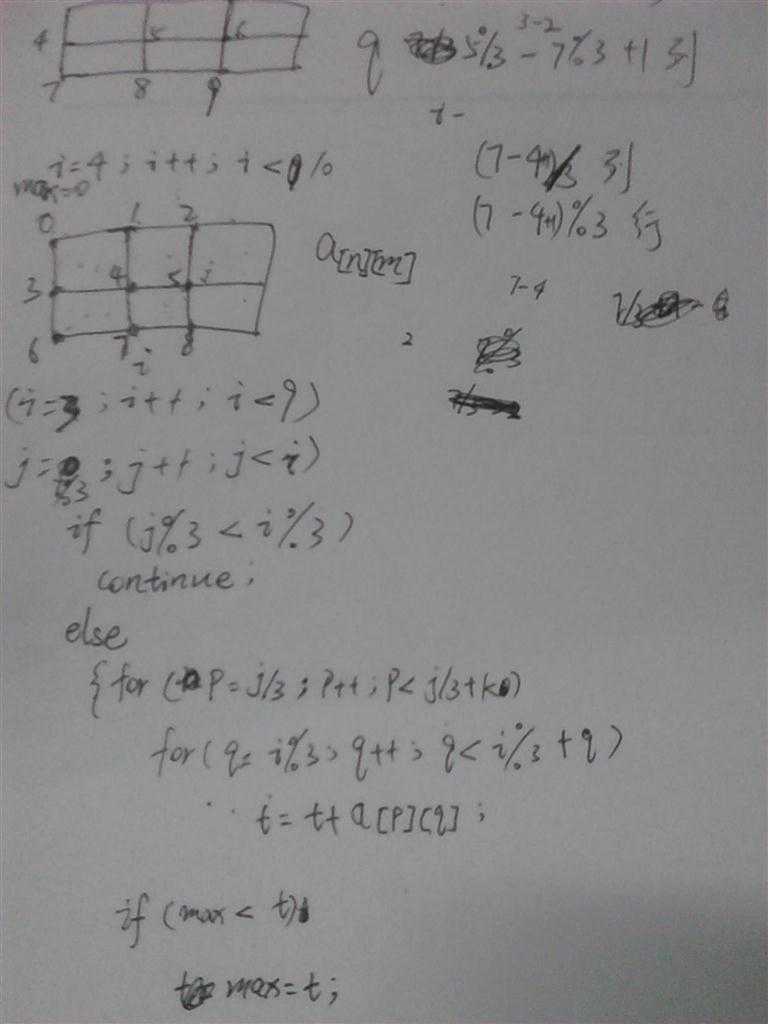 4 5 6
7 8 9
q 5%3 - 7%3 +1 列
3-2
i -
i=4 ; i++ ; i<10
max=0
(7-4+1)/3 列
(7-4+1)%3 行
0 1 2
3 4 5 i
6 7 8
i
a[n][m]
7-4
2
(i=3 ; i++ ; i<9)
j=0 ; j++ ; j<i)
if (j%3 < i%3)
continue ;
else
{for (P=j/3 ; P++ ; P<j/3+k)
for (q= i%3 ; q++ ; q<i%3+q)
t= t+a[P][q] ;
if (max < t)
max=t ;